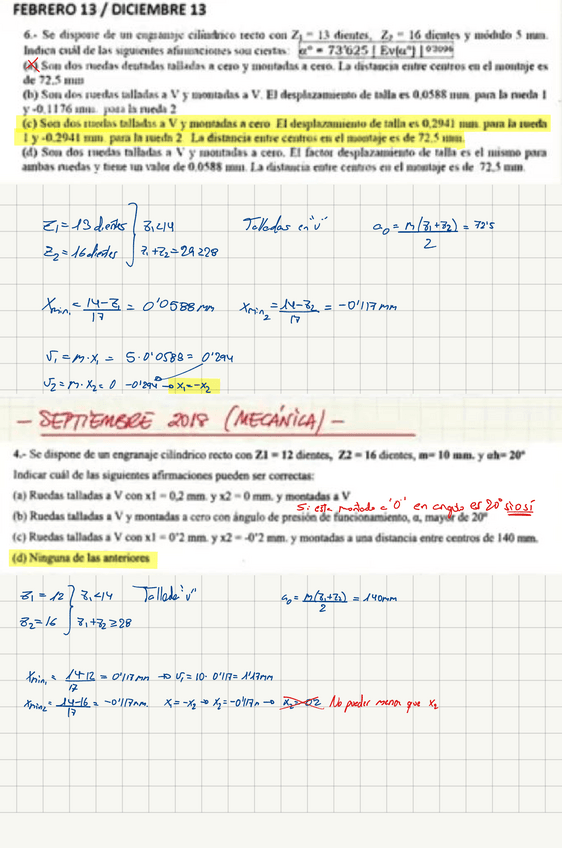 FEBRERO 13 / DICIEMBRE 13
6.- Se dispone de un engranaje cilíndrico recto con Z1 = 13 dientes, Z2 = 16 dientes y módulo 5 mm.
Indica cuál de las siguientes afirmaciones son ciertas: α° = 73'625 [ Ev(α°) ]
(a) Son dos ruedas dentadas talladas a cero y montadas a cero. La distancia entre centros en el montaje es
de 72,5 mm
(b) Son dos ruedas talladas a V y montadas a V. El desplazamiento de talla es 0,0588 mm. para la rueda 1
y -0,1176 mm. para la rueda 2
(c) Son dos ruedas talladas a V y montadas a cero El desplazamiento de talla es 0,2941 mm. para la rueda
1 y -0,2941 mm. para la rueda 2 La distancia entre centros en el montaje es de 72,5 mm.
(d) Son dos ruedas talladas a V y montadas a cero. El factor desplazamiento de talla es el mismo para
ambas ruedas y tiene un valor de 0,0588 mm. La distancia entre centros en el montaje es de 72,5 mm.
Z1 = 13 dientes } z1<14 Talladas en "V" a0 = m(z1+z2)/2 = 72'5
Z2 = 16 dientes z1+z2 = 29≥28
Xmin1 = 14-z1/17 = 0'0588 mm Xmin2 = 14-z2/17 = -0'117 mm
V1 = m·x1 = 5·0'0588 = 0'294
V2 = m·x2 = 0 -0'294 → x1=-x2
- SEPTIEMBRE 2018 (MECÁNICA) -
4.- Se dispone de un engranaje cilíndrico recto con Z1 = 12 dientes, Z2 = 16 dientes, m= 10 mm. y αh= 20°
Indicar cuál de las siguientes afirmaciones pueden ser correctas:
(a) Ruedas talladas a V con x1 = 0,2 mm. y x2 = 0 mm. y montadas a V
Si esta montado a "0" en angulo es 20° si o sí
(b) Ruedas talladas a V y montadas a cero con ángulo de presión de funcionamiento, α, mayor de 20°
(c) Ruedas talladas a V con x1 = 0'2 mm. y x2 = -0'2 mm. y montadas a una distancia entre centros de 140 mm.
(d) Ninguna de las anteriores
z1 = 12 } z1<14 Tallada "V" a0 = m(z1+z2)/2 = 140mm
z2 = 16 z1+z2 ≥ 28
Xmin1 = 14-12/17 = 0'117 mm → V1 = 10·0'117 = 1'17mm
Xmin2 = 14-16/17 = -0'117 mm. X1 = -X2 → X2 = -0'117 → x2=-02 No puede menor que X2